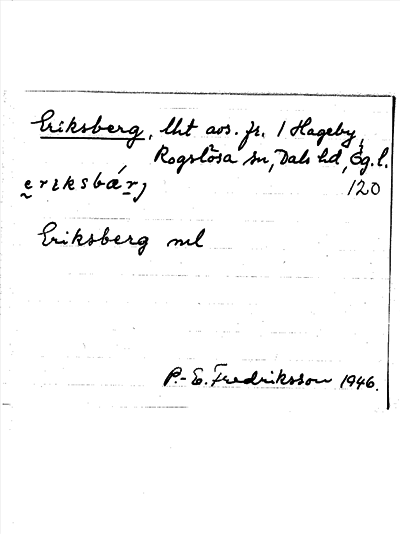 Eriksberg, lht avs. fr. 1 Hageby,
Rogslösa sn, Dals hd, Ög. l.
eriksbárj 120
Eriksberg ml
P.-E. Fredriksson 1946.